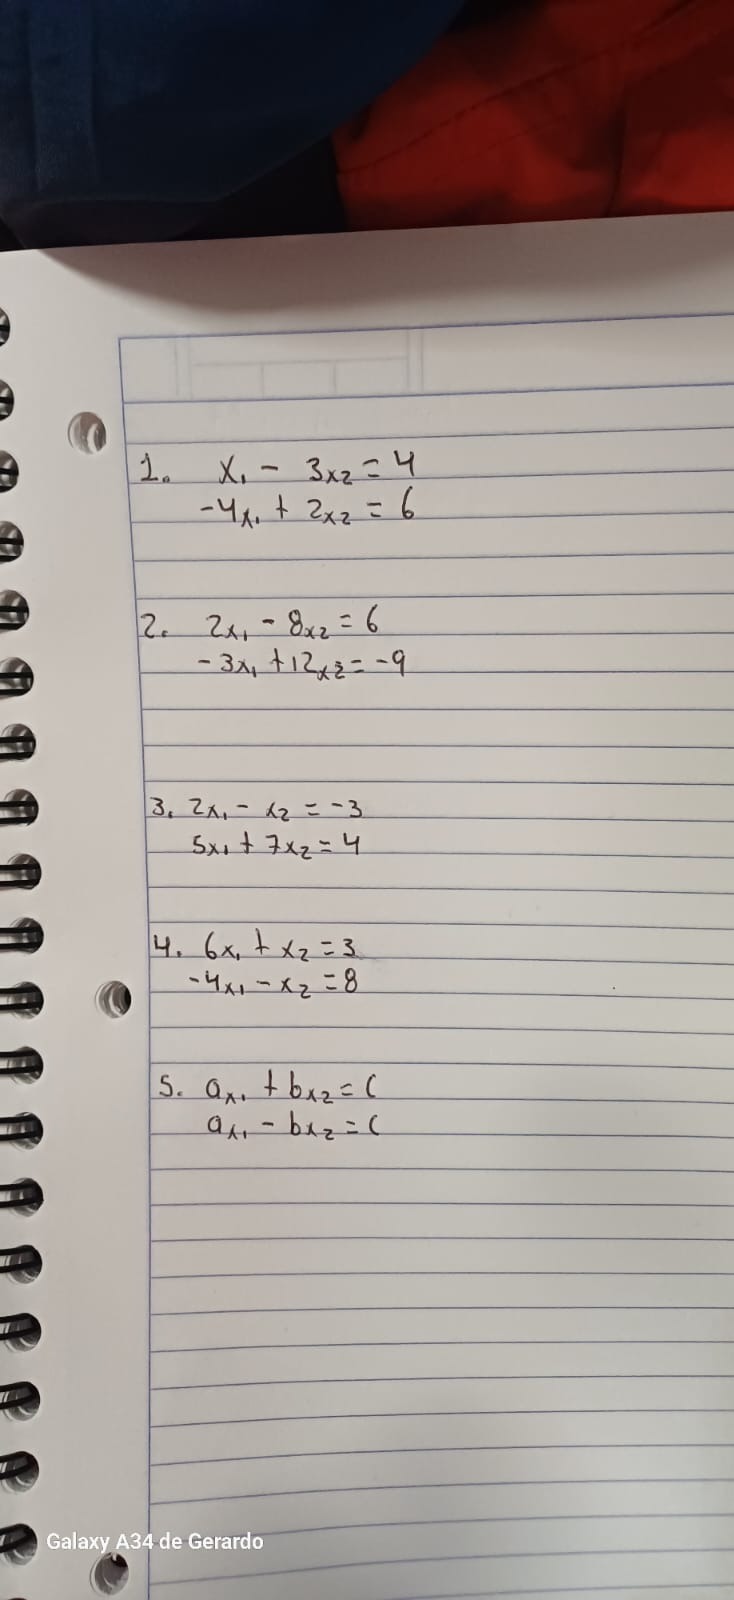 1. x₁ - 3x₂ = 4
-4x₁ + 2x₂ = 6
2. 2x₁ - 8x₂ = 6
-3x₁ + 12x₂ = -9
3. 2x₁ - x₂ = -3
5x₁ + 7x₂ = 4
4. 6x₁ + x₂ = 3
-4x₁ - x₂ = 8
5. ax₁ + bx₂ = c
ax₁ - bx₂ = c
Galaxy A34 de Gerardo